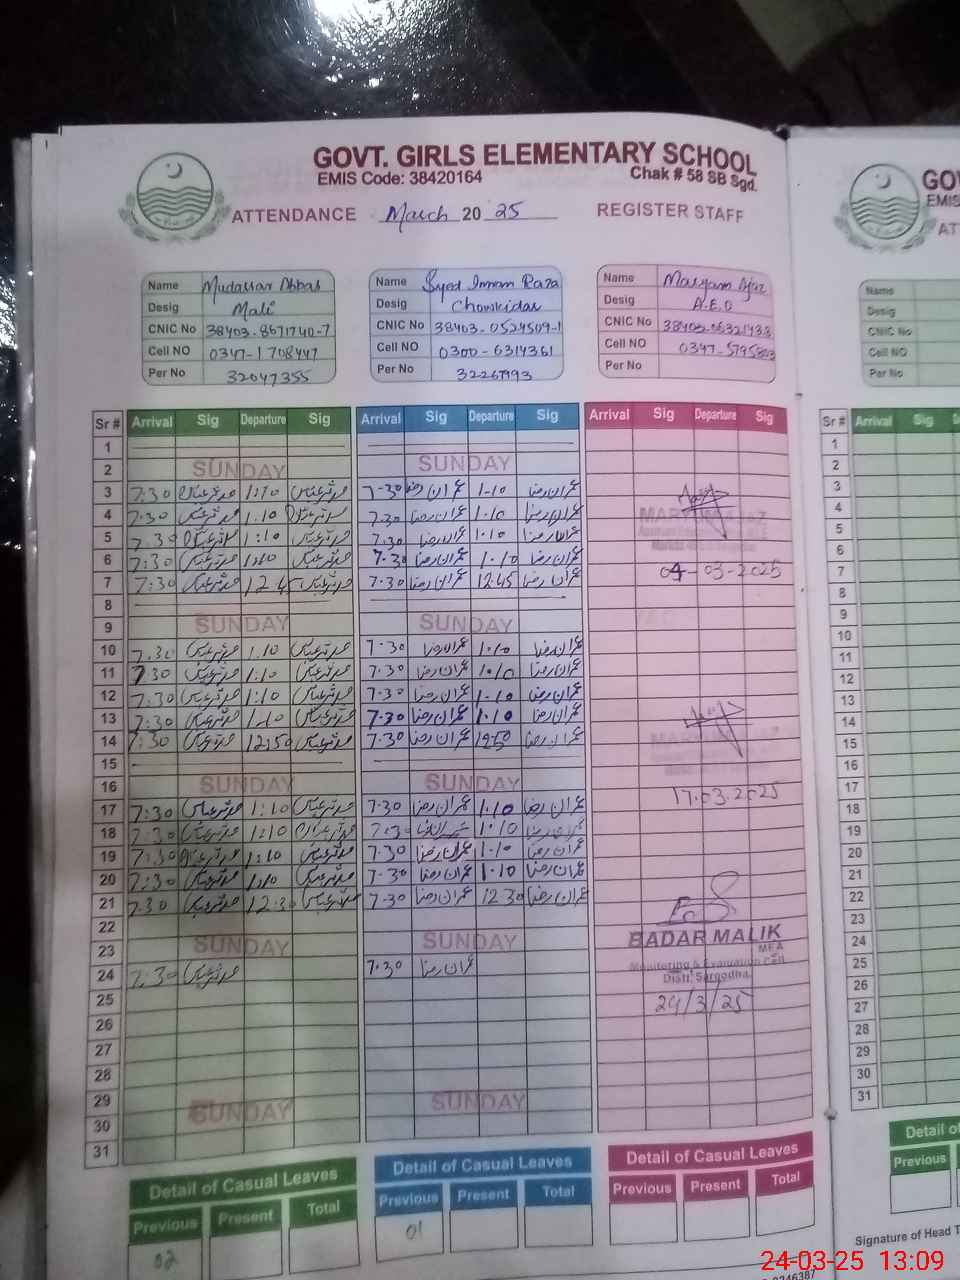 GOVT. GIRLS ELEMENTARY SCHOOL
EMIS Code: 38420164 Chak # 58 SB Sgd.
ATTENDANCE March 20 25 REGISTER STAFF
Name Mudassar Abbas Name Syed Imran Raza Name Maryam Ajaz
Desig Mali Desig Chowkidar Desig A.E.O
CNIC No 38403-8671740-7 CNIC No 38403-0524509-1 CNIC No
Cell NO 0347-1708447 Cell NO 0300-6314361 Cell NO
Per No 32047355 Per No Per No
Sr # Arrival Sig Departure Sig Arrival Sig Departure Sig Arrival Sig Departure Sig
1
2 SUNDAY SUNDAY
3 7:30 مدثر عباس 1:10 مدثر عباس 7-30 عمران رضا 1-10 عمران رضا
4 7:30 مدثر عباس 1:10 مدثر عباس 7.30 عمران رضا 1-10 عمران رضا
5 7:30 مدثر عباس 1:10 مدثر عباس 7.30 عمران رضا 1-10 عمران رضا
6 7:30 مدثر عباس 1:10 مدثر عباس 7-30 عمران رضا 1-10 عمران رضا
7 7:30 مدثر عباس 12:45 مدثر عباس 7-30 عمران رضا 12.45 عمران رضا 04-03-2025
8
9 SUNDAY SUNDAY
10 7:30 مدثر عباس 1:10 مدثر عباس 7-30 عمران رضا 1-10 عمران رضا
11 7:30 مدثر عباس 1:10 مدثر عباس 7-30 عمران رضا 1-10 عمران رضا
12 7:30 مدثر عباس 1:10 مدثر عباس 7-30 عمران رضا 1-10 عمران رضا
13 7:30 مدثر عباس 1:10 مدثر عباس 7-30 عمران رضا 1-10 عمران رضا
14 7:30 مدثر عباس 12:50 مدثر عباس 7-30 عمران رضا 1250 عمران رضا
15
16 SUNDAY SUNDAY
17 7:30 مدثر عباس 1:10 مدثر عباس 7-30 عمران رضا 1-10 عمران رضا 17.03.2025
18 7:30 مدثر عباس 1:10 مدثر عباس 7-30 عمران رضا 1-10 عمران رضا
19 7:30 مدثر عباس 1:10 مدثر عباس 7-30 عمران رضا 1-10 عمران رضا
20 7:30 مدثر عباس 1:10 مدثر عباس 7-30 عمران رضا 1-10 عمران رضا
21 7:30 مدثر عباس 12:30 مدثر عباس 7-30 عمران رضا 12 30 عمران رضا
22
BADAR MALIK
MEA
23 SUNDAY SUNDAY
Monitoring & Evaluation Cell
24 7:30 مدثر عباس 7-30 عمران رضا
Distt: Sargodha
25
24/3/25
26
27
28
29
30 SUNDAY SUNDAY
31
Detail of Casual Leaves Detail of Casual Leaves Detail of Casual Leaves
Previous Present Total Previous Present Total Previous Present Total
02 01
Name
Desig
CNIC No
Cell NO
Per No
Sr # Arrival Sig
1
2
3
4
5
6
7
8
9
10
11
12
13
14
15
16
17
18
19
20
21
22
23
24
25
26
27
28
29
30
31
Previous
24-03-25 13:09